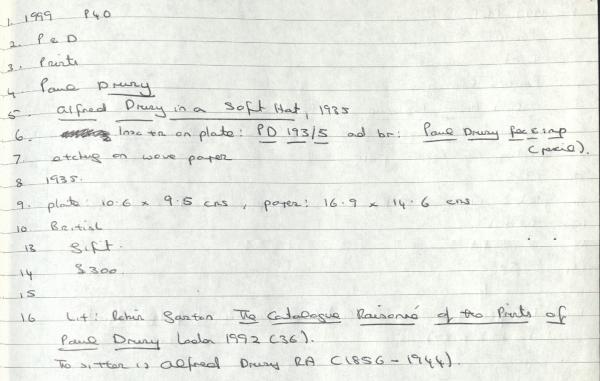 1. 1999 P40
2. P & D
3. Prints
4 Paul Drury
5. Alfred Drury in a Soft Hat, 1935
6. Inscr on plate: PD 193/5 and br: Paul Drury fec & imp (pencil).
7 etching on wove paper
8 1935.
9. plate: 10.6 x 9.5 cms, paper: 16.9 x 14.6 cms
10 British
13 Gift.
14 $300.
15
16 Lit: Robin Garton The Catalogue Raisonné of the Prints of
Paul Drury London 1992 (36).
The sitter is Alfred Drury RA (1856 - 1944).